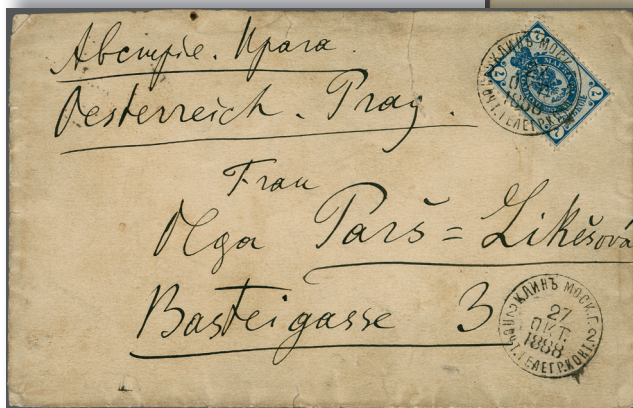 Австрія. Прага.
Oesterreich. Prag.
Frau
Olga Parš=Likešová
Basteigasse 3
КЛИНЪ МОСК.
1888
7
КЛИНЪ МОСК. Г.
27
ОКТ.
1888
ПОЧТ. ТЕЛЕГР. КОНТ.